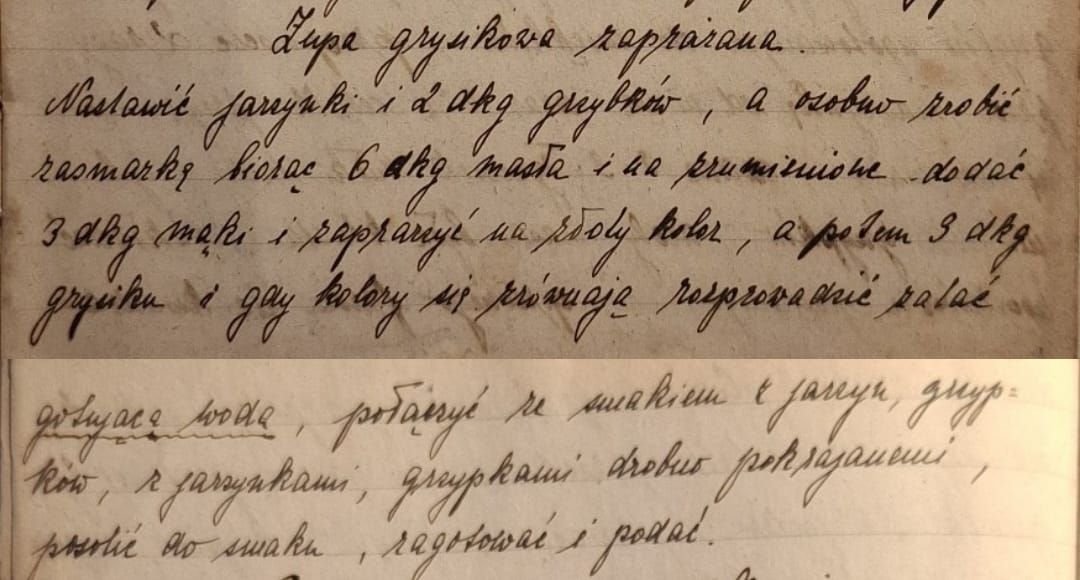 Zupa grysikowa zaprażana.
Nastawić jarzynki i 2 dkg grzybków, a osobno zrobić
zasmażkę biorąc 6 dkg masła i na zrumienione dodać
3 dkg mąki i zaprażyć na złoty kolor, a potem 3 dkg
grysiku i gdy kolory się zrównają rozprowadzić zalać
gotującą wodą, połączyć ze smakiem z jarzyn, grzyp=
ków, z jarzynkami, grzypkami drobno pokrajanemi,
posolić do smaku, zagotować i podać.